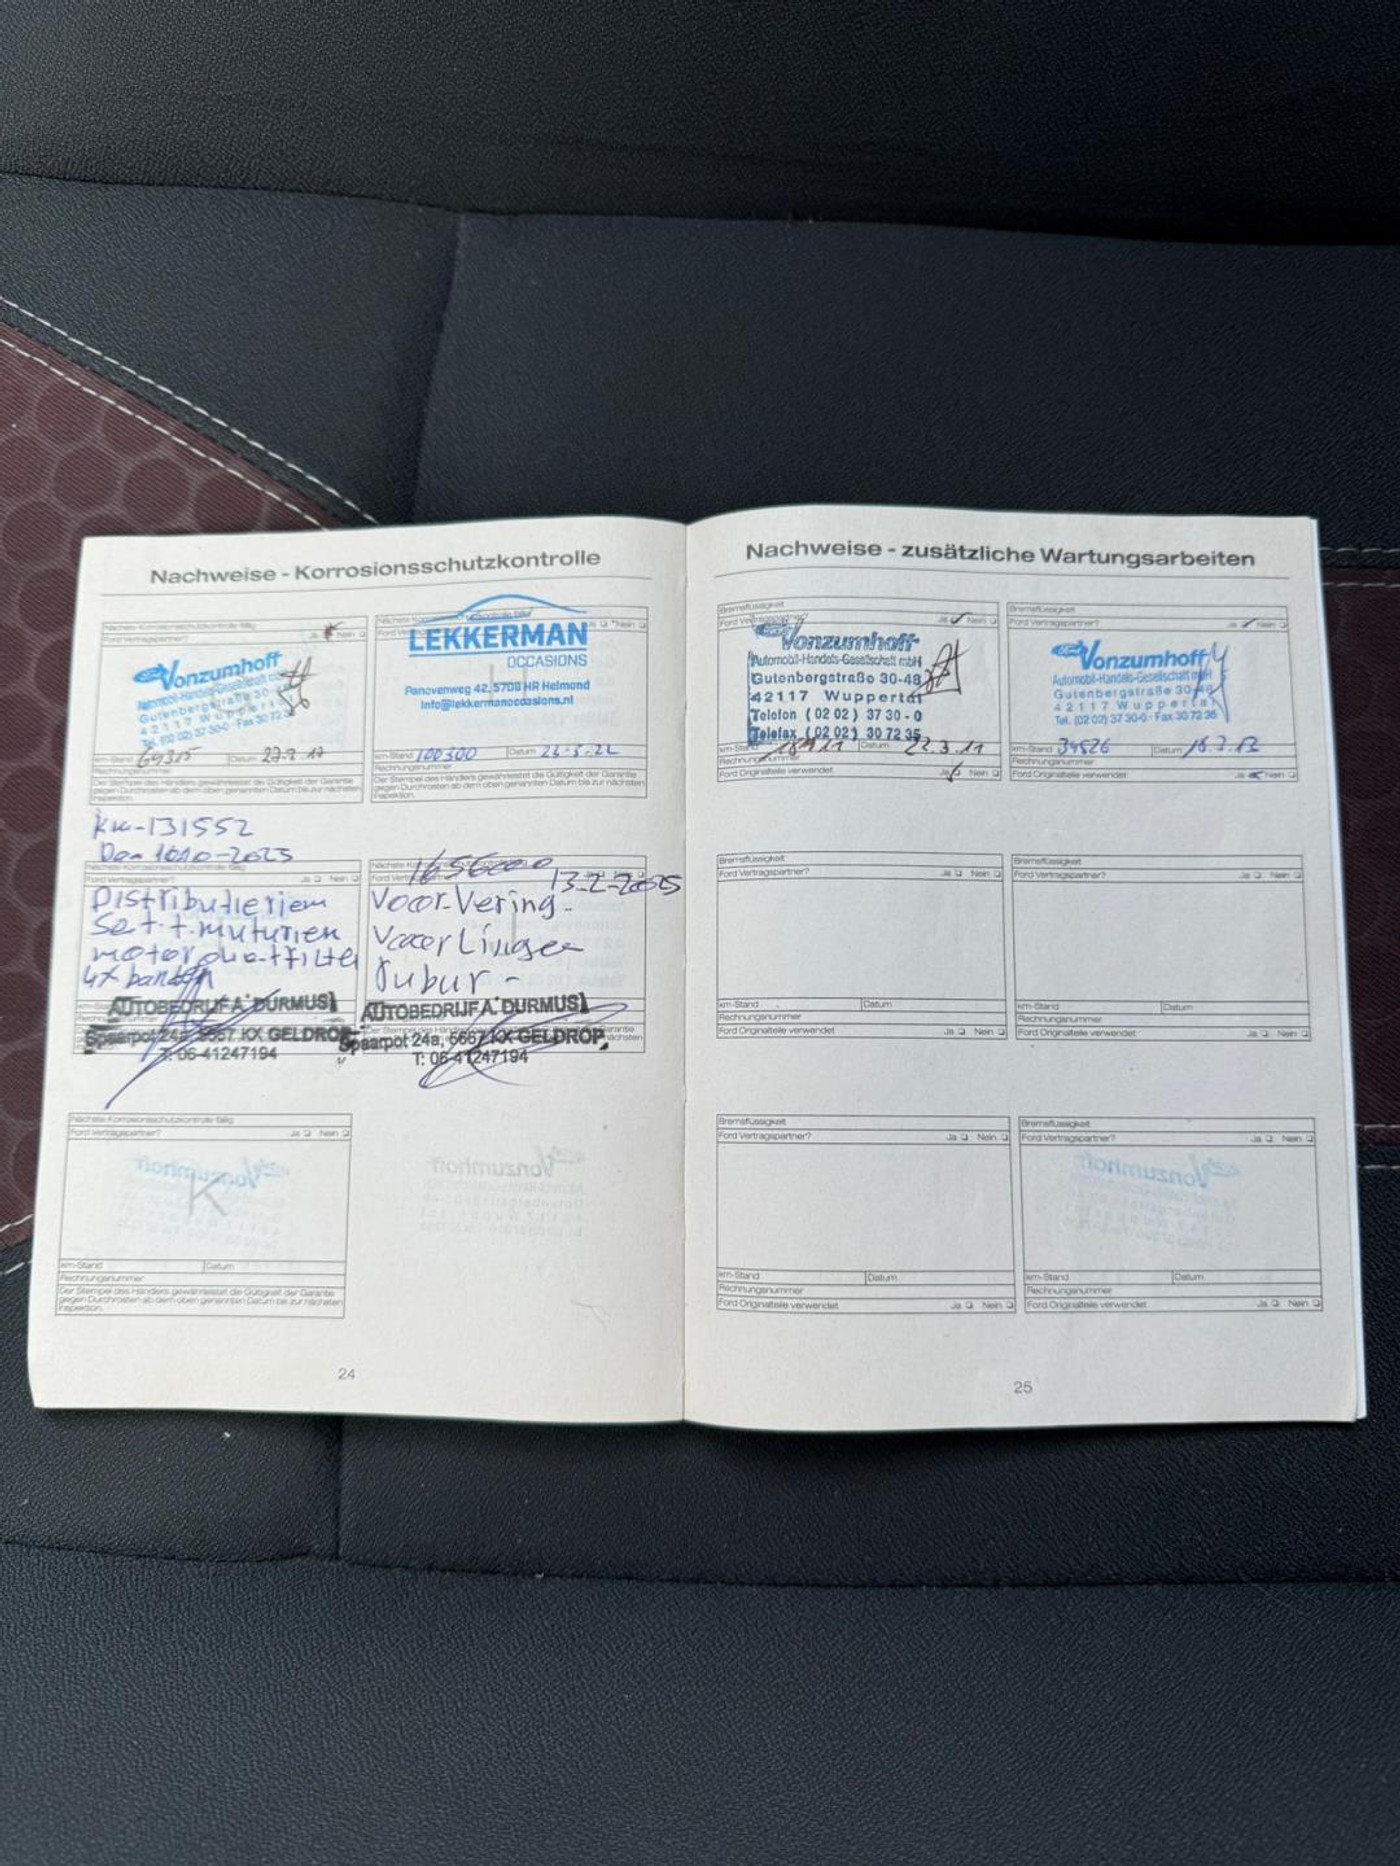 Nachweise - Korrosionsschutzkontrolle
Nächste Korrosionsschutzkontrolle fällig
Ford Vertragspartner? Ja Nein
Vonzumhoff
Automobil-Handels-Gesellschaft
Gutenbergstraße 30
42117 Wuppertal
Tel. (02 02) 37 30-0 · Fax 30 72 36
km-Stand 69315 Datum
Rechnungsnummer
Der Stempel des Händlers gewährleistet die Gültigkeit der Garantie
gegen Durchrosten ab dem oben genannten Datum bis zur nächsten
Inspektion.
LEKKERMAN
OCCASIONS
Panovenweg 42, 5708 HR Helmond
Info@lekkermanoccasions.nl
km-Stand 100300 Datum
Rechnungsnummer
Der Stempel des Händlers gewährleistet die Gültigkeit der Garantie
gegen Durchrosten ab dem oben genannten Datum bis zur nächsten
Inspektion.
KM-131552
Ford Vertragspartner? Ja Nein
Distributieriem
motor
4x banden
AUTOBEDRIJF A. DURMUS
Spaarpot 24a, 5667 KX GELDROP
T: 06-41247194
13-2-2025
Voor-Vering-
AUTOBEDRIJF A. DURMUS
Spaarpot 24a, 5667 KX GELDROP
T: 06-41247194
Nächste Korrosionsschutzkontrolle fällig
Ford Vertragspartner? Ja Nein
km-Stand Datum
Rechnungsnummer
Der Stempel des Händlers gewährleistet die Gültigkeit der Garantie
gegen Durchrosten ab dem oben genannten Datum bis zur nächsten
Inspektion.
24
Nachweise - zusätzliche Wartungsarbeiten
Bremsflüssigkeit
Ja Nein
Vonzumhoff
Automobil-Handels-Gesellschaft mbH
Gutenbergstraße 30-48
42117 Wuppertal
Telefon (02 02) 37 30 - 0
Telefax (02 02) 30 72 36
km-Stand Datum 22.3.11
Rechnungsnummer
Ford Originalteile verwendet Ja Nein
Bremsflüssigkeit
Ford Vertragspartner? Ja Nein
Vonzumhoff
Automobil-Handels-Gesellschaft mbH
Gutenbergstraße 30-48
42117 Wuppertal
Tel. (02 02) 37 30-0 · Fax 30 72 36
km-Stand 34526 Datum
Rechnungsnummer
Ford Originalteile verwendet Ja Nein
Bremsflüssigkeit
Ford Vertragspartner? Ja Nein
km-Stand Datum
Rechnungsnummer
Ford Originalteile verwendet Ja Nein
Bremsflüssigkeit
Ford Vertragspartner? Ja Nein
km-Stand Datum
Rechnungsnummer
Ford Originalteile verwendet Ja Nein
Bremsflüssigkeit
Ford Vertragspartner? Ja Nein
km-Stand Datum
Rechnungsnummer
Ford Originalteile verwendet Ja Nein
Bremsflüssigkeit
Ford Vertragspartner? Ja Nein
km-Stand Datum
Rechnungsnummer
Ford Originalteile verwendet Ja Nein
25